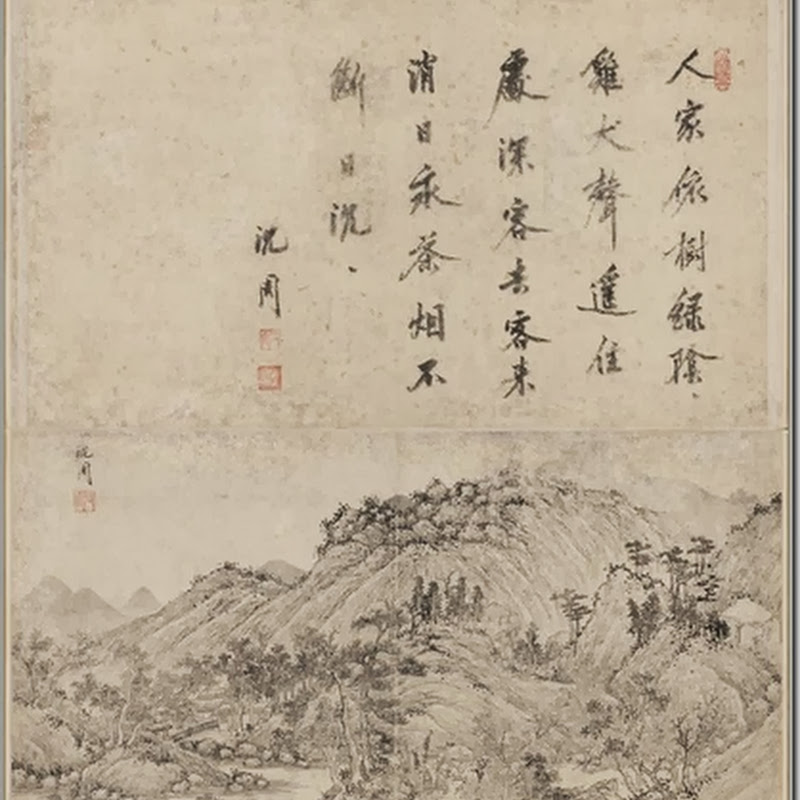 人家依樹綠陰
雞犬聲遥住
處深客去客来
消日永茶烟不
斷日沉、
沈周
沈周